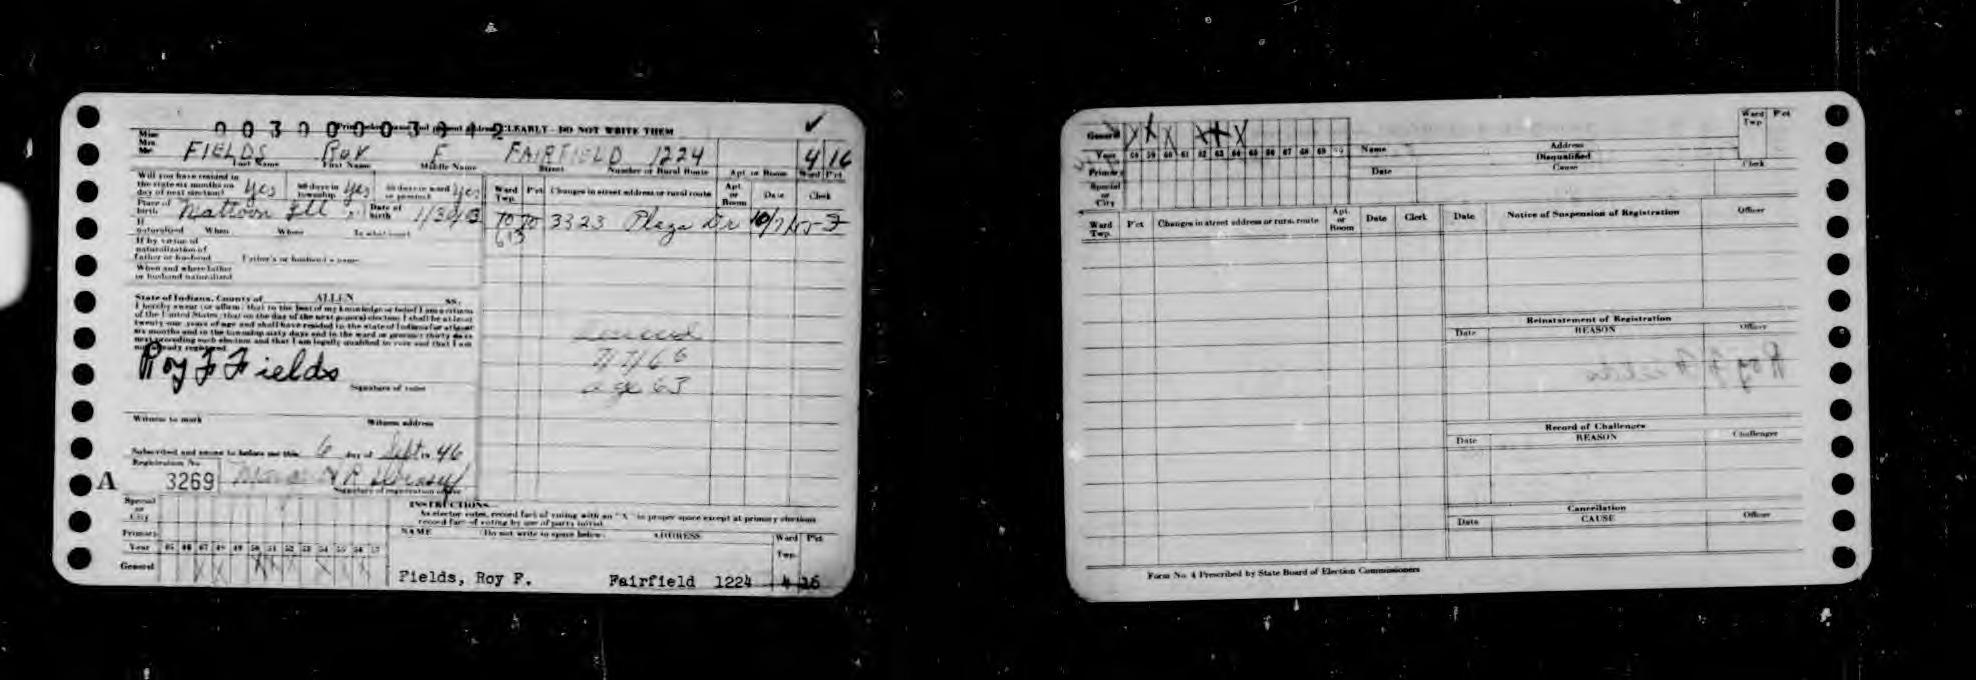 003000034 2
CLEARLY - DO NOT WRITE THEM
Miss
Mrs.
Mr.
FIELDS ROY F FAIRFIELD 1224 4 16
Last Name First Name Middle Name Street Number or Rural Route Apt. or Room Ward Pct
Will you have resided in
the state six months on
day of next election? Yes 60 days in township Yes 30 days in ward or precinct Yes
Ward Twp. Pct Changes in street address or rural route Apt. or Room Date Clerk
Place of birth Mattoon Ill. Date of birth 1/30/03
3323 Plaza Dr
If naturalized When Where In what court
If by virtue of
naturalization of
father or husband Father's or husband's name
When and where father
or husband naturalized
State of Indiana, County of ALLEN ss.
I hereby swear (or affirm) that to the best of my knowledge or belief I am a citizen
of the United States; that on the day of the next general election I shall be at least
twenty-one years of age and shall have resided in the state of Indiana for at least
six months and in the township sixty days and in the ward or precinct thirty days
next preceding such election and that I am legally qualified to vote and that I am
not already registered.
Roy F Fields
Signature of voter
7/7/66
age 63
Witness to mark Witness address
Subscribed and sworn to before me this 6 day of Sept 19 46
Registration No.
A 3269
Signature of registration officer
INSTRUCTIONS
As elector votes, record fact of voting with an "X" in proper space except at primary elections
record fact of voting by use of party initial.
Special or City
Primary
Year 45 46 47 48 49 50 51 52 53 54 55 56 57
General X X X X X X X X
NAME (Do not write in space below) ADDRESS Ward Twp. Pct
Fields, Roy F. Fairfield 1224 4 16
General X X X X X
Year 58 59 60 61 62 63 64 65 66 67 68 69 70
Primary
Special or City
Name Address Ward Twp. Pct
Disqualified
Date Cause Clerk
Ward Twp. Pct Changes in street address or rural route Apt. or Room Date Clerk
Date Notice of Suspension of Registration Officer
Reinstatement of Registration
Date REASON Officer
Record of Challenges
Date REASON Challenger
Cancellation
Date CAUSE Officer
Form No. 4 Prescribed by State Board of Election Commissioners